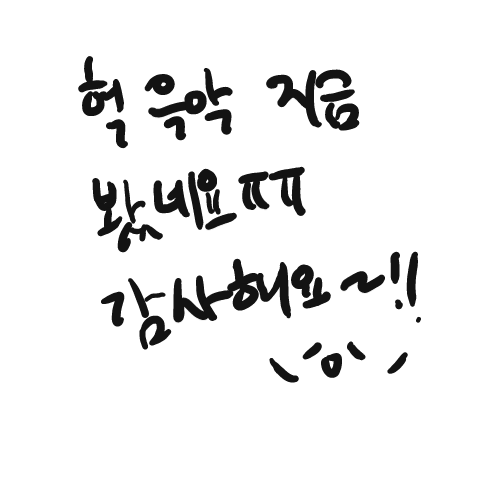 헉 윽악 지금
봤네요ㅠㅠ
감사해요~!!